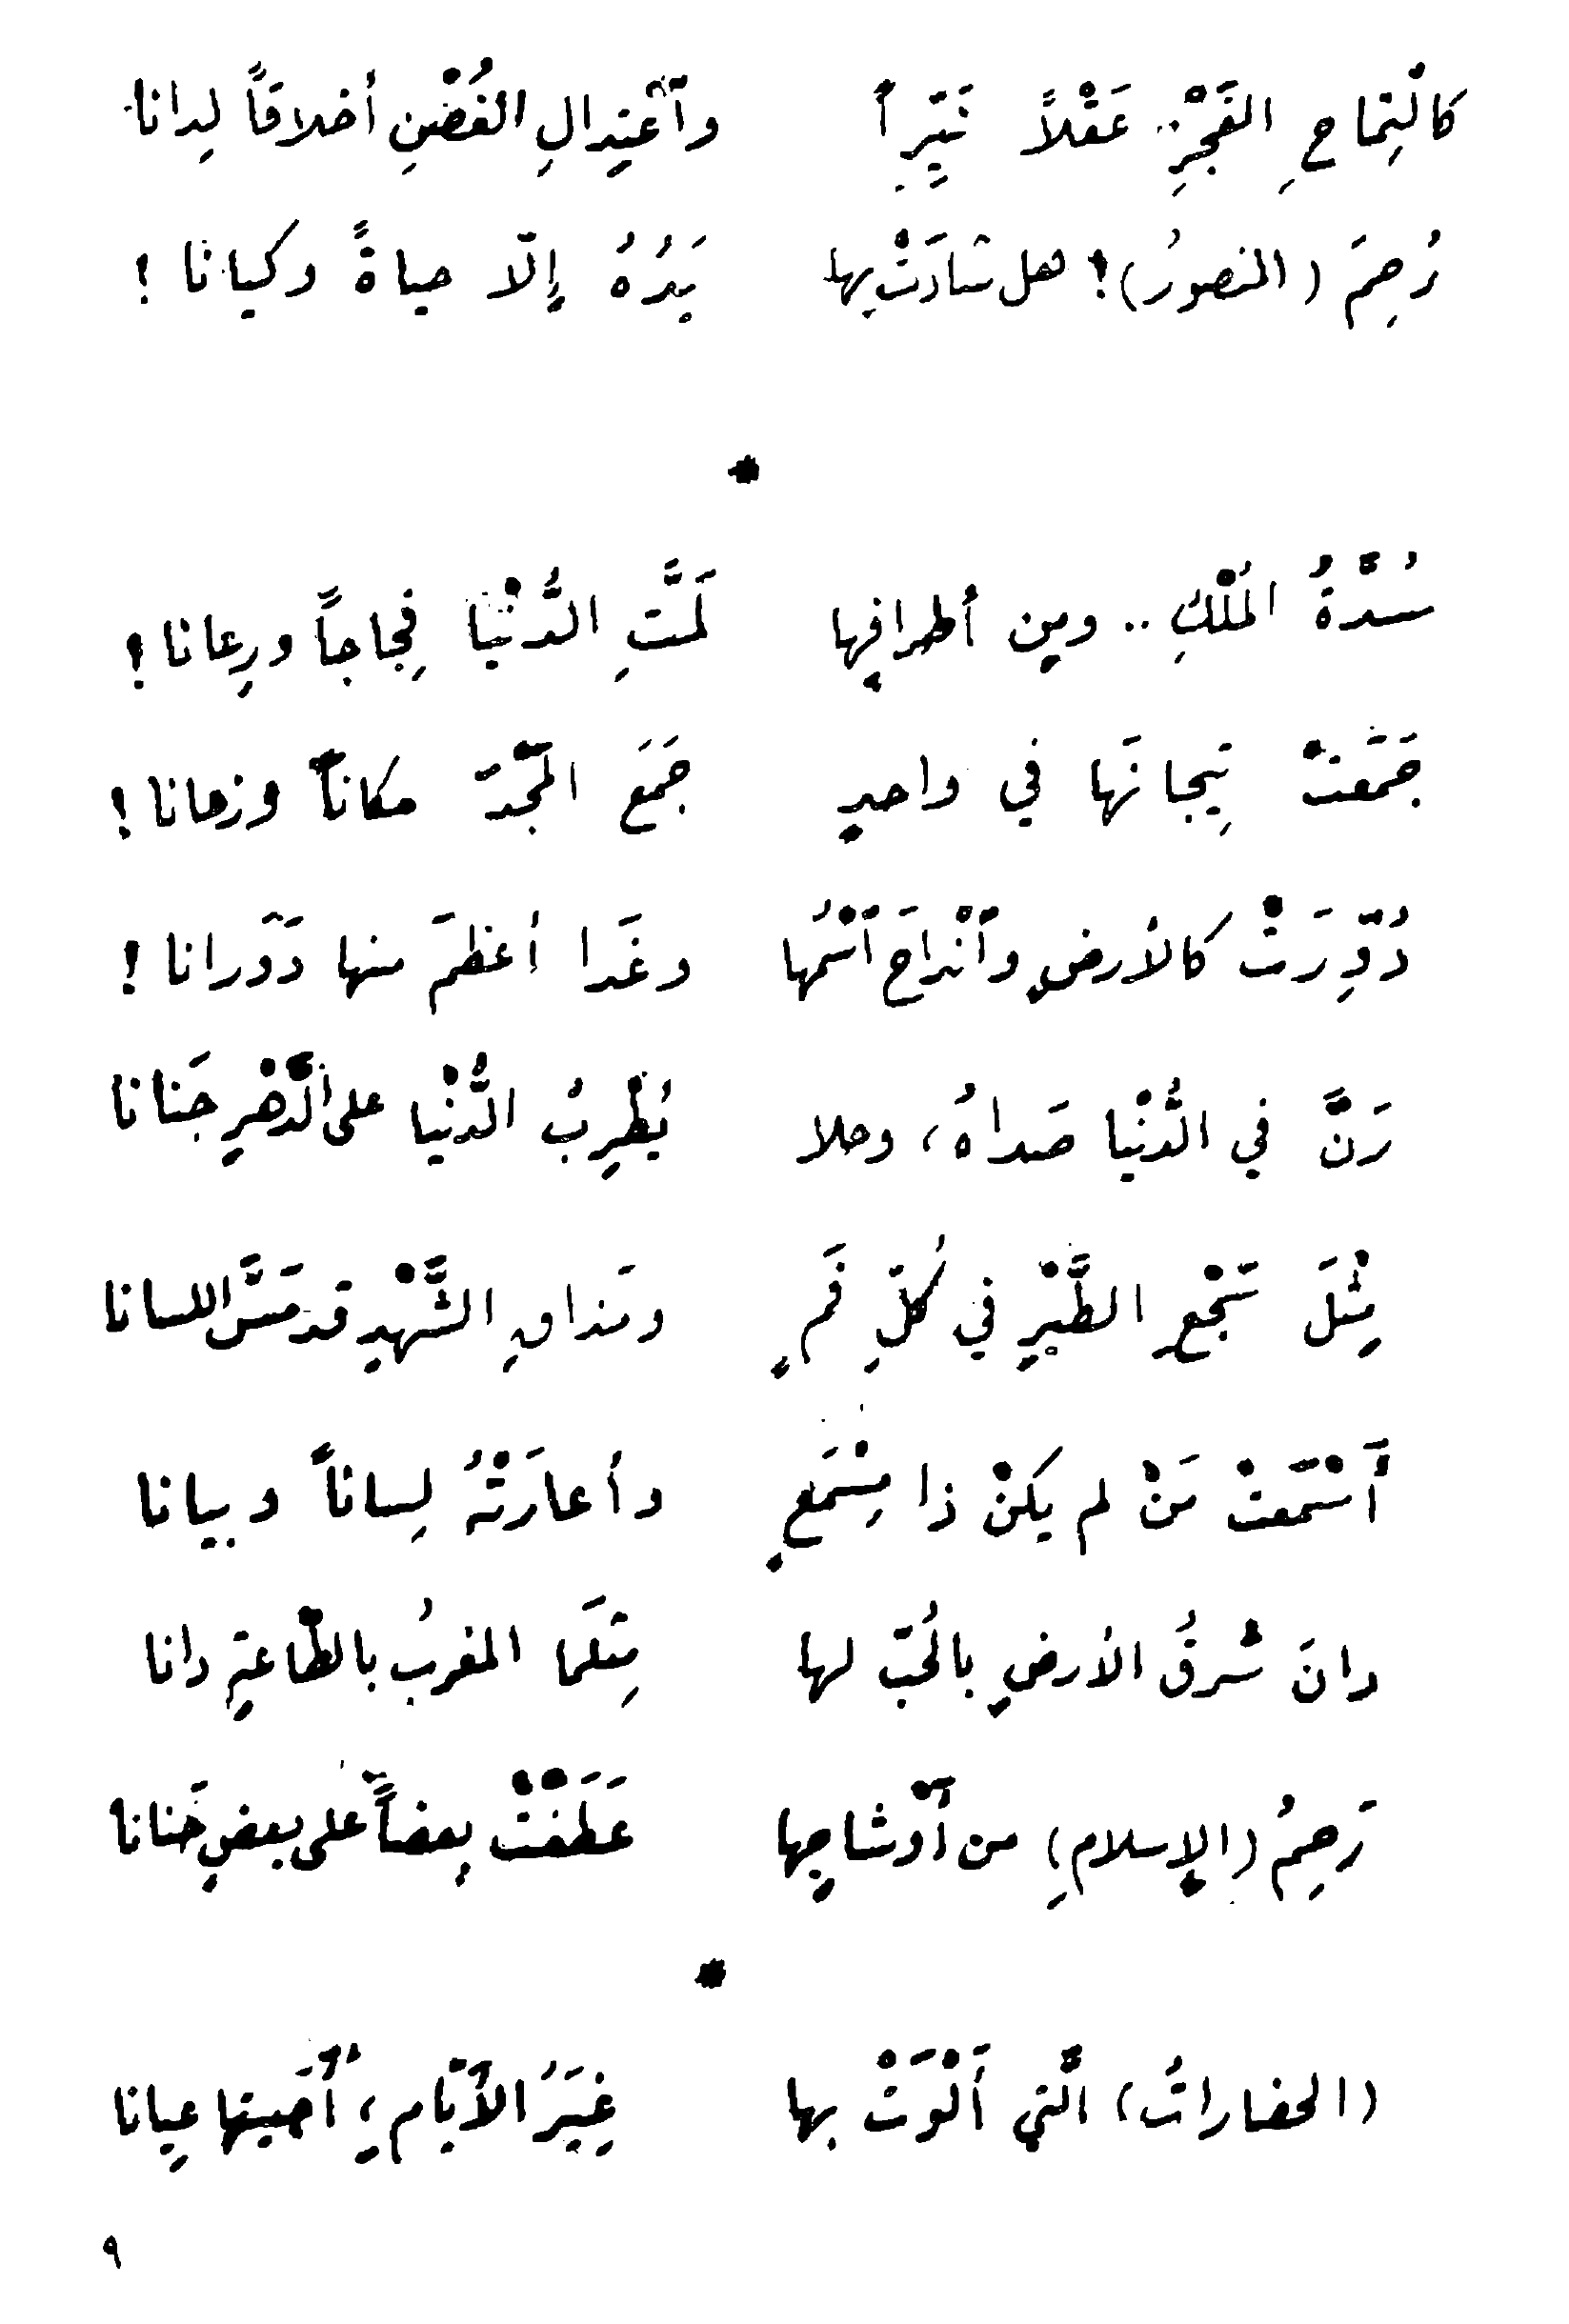 كالْتِماحِ الفَجْرِ.. عَقْلاً نَيِّراً وٱعْتِدالِ الغُصْنِ أخلاقاً لِدانا
رُحِمَ (المنصورُ)! هل شادَتْ بها يَدُهُ إلّا حياةً وكيانا !
*
سُدَّةُ المُلْكِ .. ومِن أطرافِها لَمَّتِ الدُّنْيا فِجاجاً ورِعانا !
جَمَعَتْ تِيجانَها في واحدٍ جَمَعَ المَجْدَ مكاناً وزمانا !
دُوِّرَتْ كالأرضِ وٱنْداحَ ٱسْمُها وغَدا أعظمَ منها دَوَرانا !
رَنَّ في الدُّنْيا صَداهُ، وحلا يُطْرِبُ الدُّنْيا على الدَّهْرِ جَنانا
مِثْلَ سَجْعِ الطَّيْرِ في كُلِّ فَمٍ ومَذاقِ الشَّهْدِ قد مَسَّ اللسانا
أَسْمَعَتْ مَنْ لم يكنْ ذا مِسْمَعٍ وأعارَتْهُ لِساناً وبيانا
دانَ شرقُ الأرضِ بالحُبِّ لها مِثلَما المغربُ بالطّاعةِ دانا
رَحِمُ (الإسلامِ) من أَوْشاجِها عَطَفَتْ بعضاً على بعضٍ حَنانا
*
(الحضاراتُ) الَّتي أَلْوَتْ بها غِيَرُ الأيّامِ، أُحْيِيتها عِيانا
٩